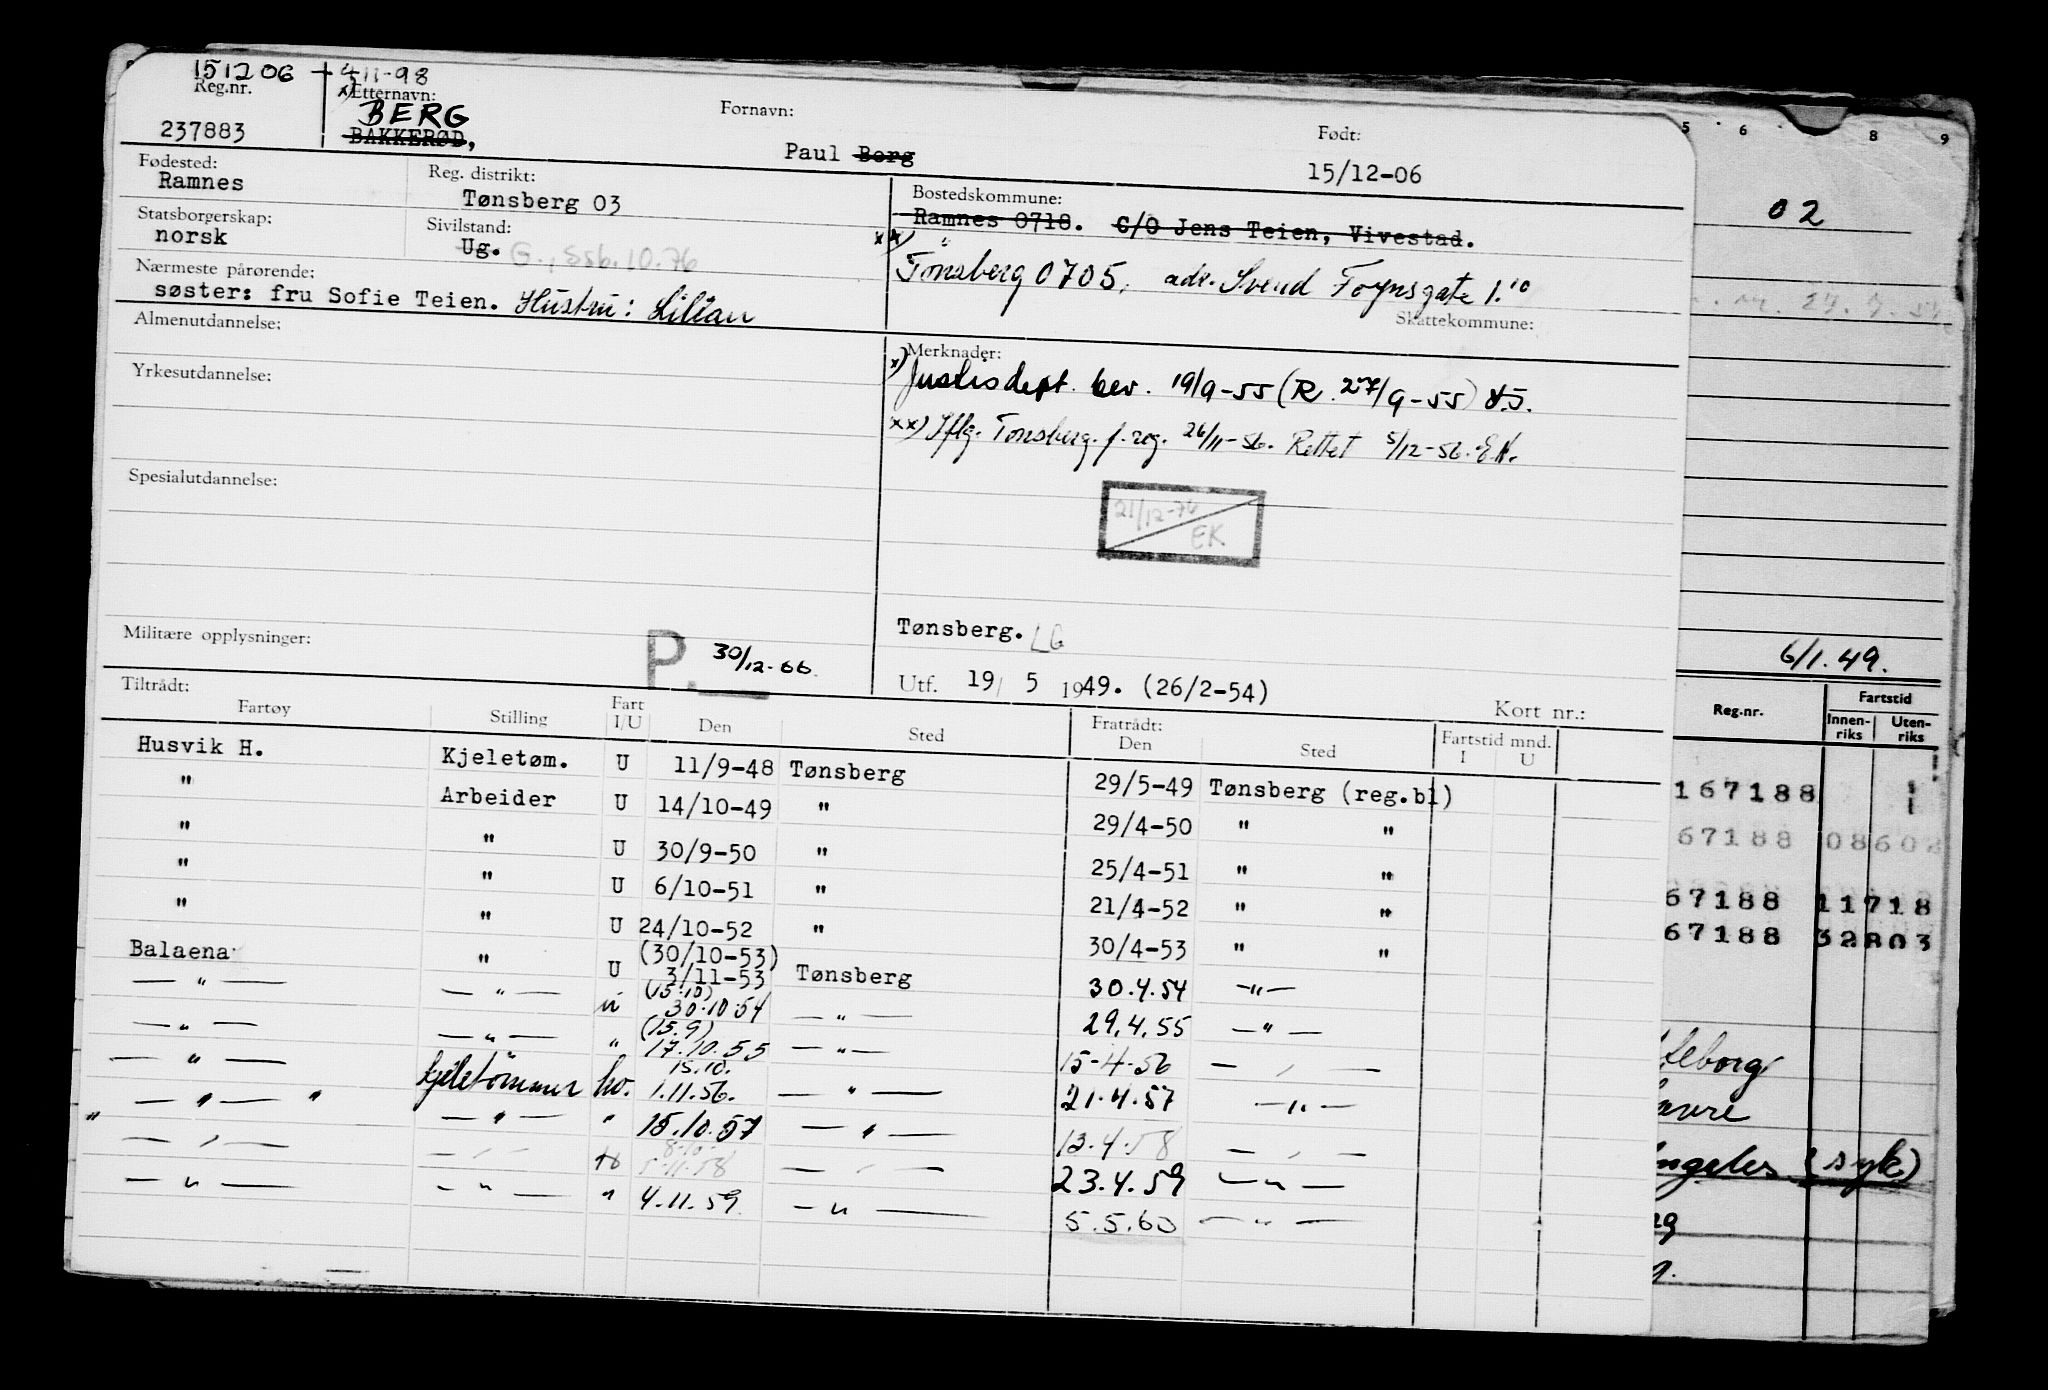 151206 + 4/11-98
Reg.nr. x) Etternavn: Fornavn: Født:
BERG
237883 BAKKERØD, Paul Berg 15/12-06
Fødested: Reg. distrikt: Bostedskommune:
Ramnes Tønsberg 03 Ramnes 0718. C/O Jens Teien, Vivestad.
Statsborgerskap: Sivilstand:
norsk Ug. G., Ssb. 10.76 xx) Tønsberg 0705, adr. Svend Foynsgate 1.10
Nærmeste pårørende: Skattekommune:
søster: fru Sofie Teien. Hustru: Lilian
Almenutdannelse:
Merknader:
x) Justisdept. bev. 19/9-55 (R. 27/9-55)
Yrkesutdannelse:
xx) Iflg. Tønsberg f.reg. 26/11-56. Rettet 5/12-56. E.K.
Spesialutdannelse:
21/12-76
EK
Militære opplysninger: P. 30/12-66.
Tønsberg. LG
Utf. 19/ 5 1949. (26/2-54)
Kort nr.:
Tiltrådt: Fratrådt:
Fartøy Stilling Fart I/U Den Sted Den Sted Fartstid mnd. I U
Husvik H. Kjeletøm. U 11/9-48 Tønsberg 29/5-49 Tønsberg (reg.bl)
" Arbeider U 14/10-49 " 29/4-50 " "
" " U 30/9-50 " 25/4-51 " "
" " U 6/10-51 " 21/4-52 " "
" " U 24/10-52 " 30/4-53 " "
Balaena " U (30/10-53) 3/11-53 Tønsberg 30.4.54 — " —
— " — — " — u (15.10) 30.10.54 — " — 29.4.55 — " —
— " — — " — " (15.9) 17.10.55 — " — 15-4-56 — " —
— " — kjeletømmer ho. 15.10. 1.11.56. — " — 21.4.57 — " —
— " — " — " — " 15.10.57 — " — 13.4.58 — " —
" — " — — " — 8.10. 5.11.58 — " — 23.4.59 — " —
— " — — " — " 4.11.59 — " — 5.5.60 — " —
5 6 8 9
02
6/1.49.
Reg.nr. Fartstid
Innen-riks Uten-riks
167188
67188 08602
67188 11718
67188 32803
(syk)